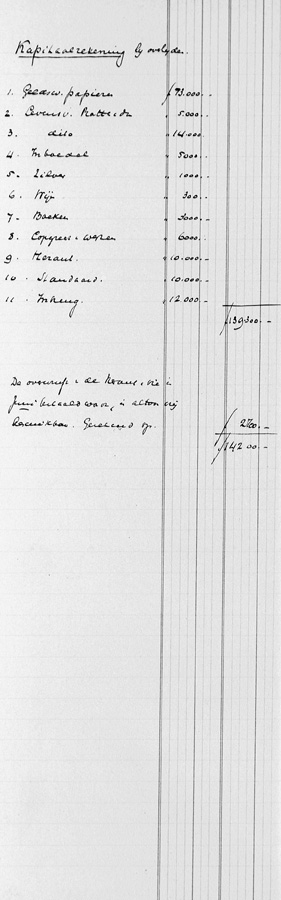 Kapitaalrekening bij overlijden.
1. Geldsw. papieren ƒ 73.000.-
2. Levensv. Rotterdm " 5.000.-
3. dito " 14.000.
4. Inboedel " 5000.-
5. Zilver " 1000.-
6. Wijn " 300.-
7. Boeken " 3000.-
8. Copyrecht werken 6000.-
9. Heraut. " 10.000.-
10. Standaard. " 10.000.-
11. Inbreng. " 12.000.-
ƒ139300.-
De de Heraut, die in
Juni betaald was, is
beschikbaar. Gerekend op. ƒ 2700.-
ƒ142 00.-